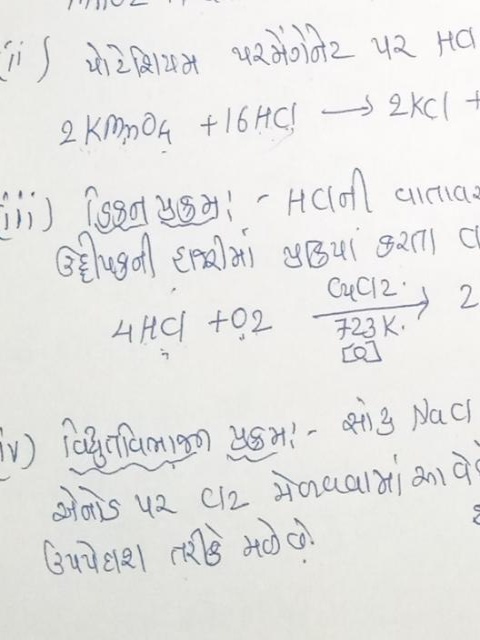 (ii) પોટેશિયમ પરમેંગેનેટ પર HCl
2KMnO4 +16HCl → 2KCl +
(iii) ડિકન પ્રક્રમ:- HClની વાતાવર
ઉદ્દીપકની હાજરીમાં પ્રક્રિયા કરતા Cl
4HCl + O2 CuCl2. 723K. [O] → 2
iv) વિદ્યુતવિભાજન પ્રક્રમ:- સાંદ્ર NaCl
એનોડ પર Cl2 મેળવવામાં આવે
ઉપપેદાશ તરીકે મળે છે.